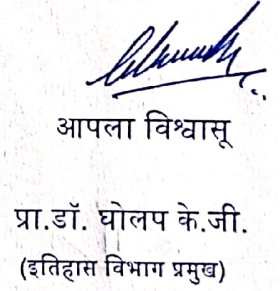 आपला विश्वासू
प्रा.डॉ. घोलप के.जी.
(इतिहास विभाग प्रमुख)